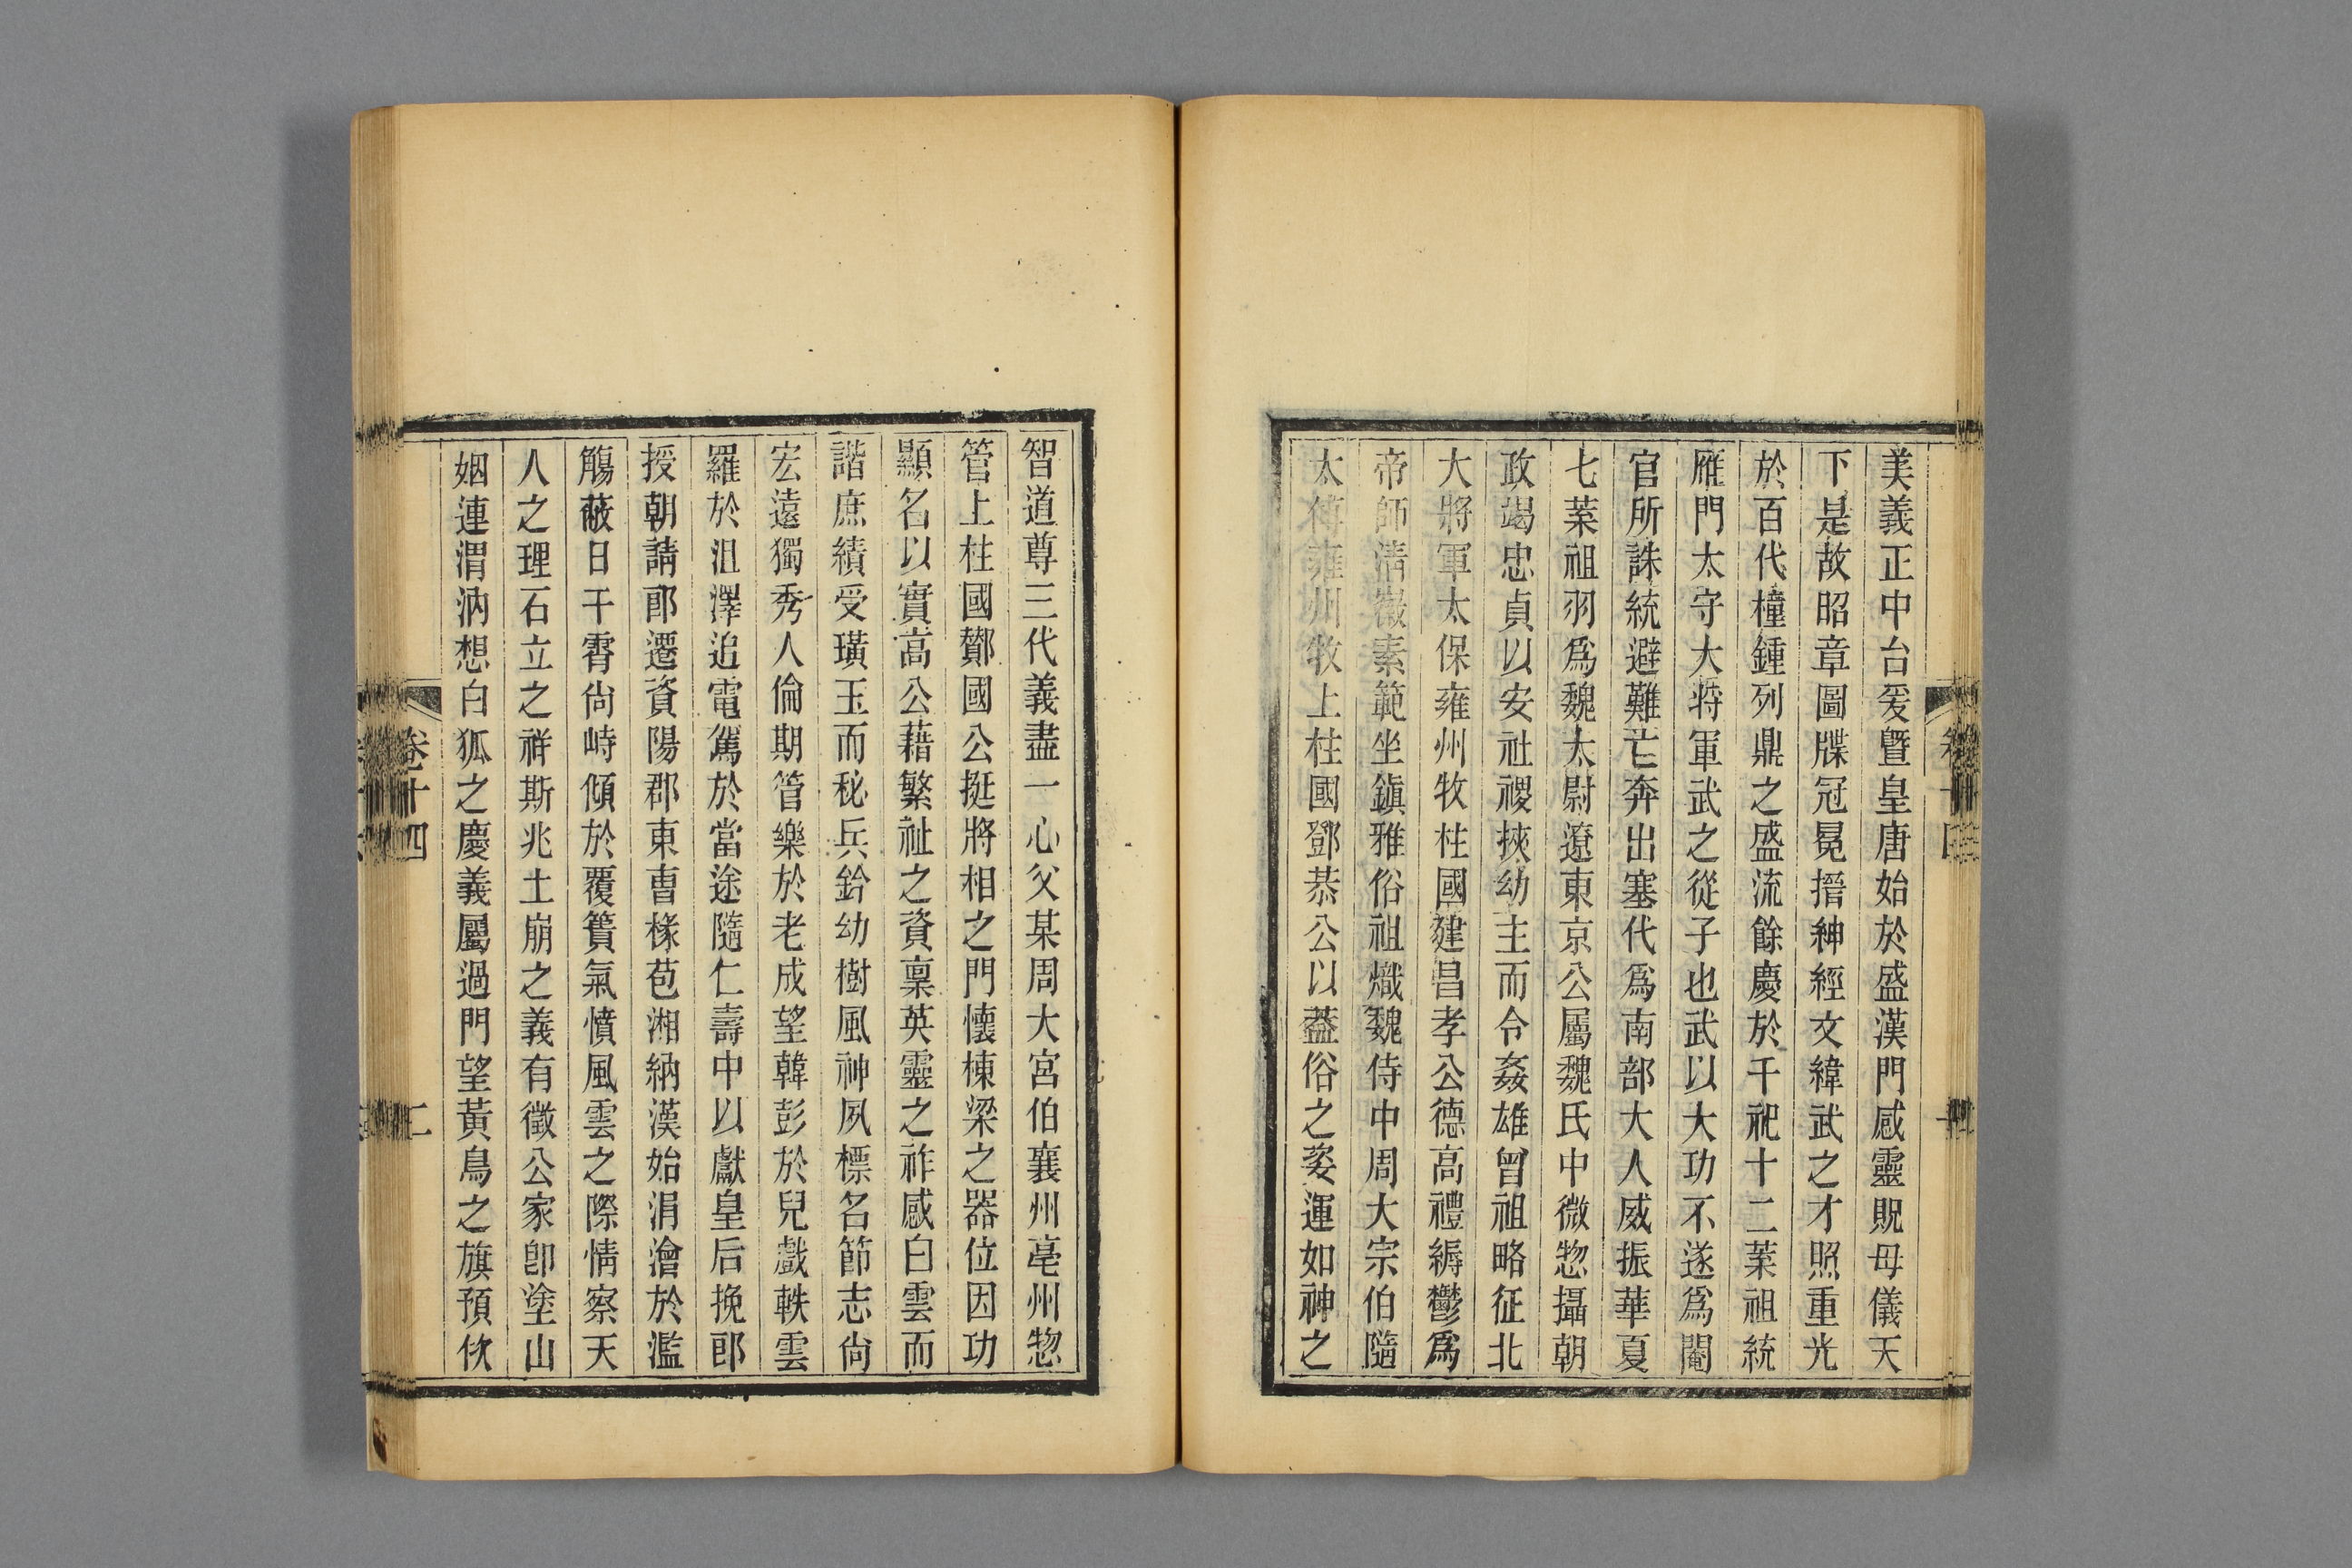 美義正中台爰暨皇唐始於盛漢門感靈貺母儀天
下是故昭章圖牒冠冕搢紳經文緯武之才照重光
於百代橦鍾列鼎之盛流餘慶於千祀十二葉祖統
雁門太守大將軍武之從子也武以大功不遂爲閹
官所誅統避難亡奔出塞代爲南部大人威振華夏
七葉祖羽爲魏太尉遼東京公屬魏氏中微惣攝朝
政竭忠貞以安社稷挾幼主而令姦雄曾祖略征北
大將軍太保雍州牧柱國建昌孝公德高禮縟鬱爲
帝師清徽素範坐鎭雅俗祖熾魏侍中周大宗伯隨
太傅雍州牧上柱國鄧恭公以葢俗之姿運如神之
智道尊三代義盡一心父某周大宮伯襄州亳州惣
管上柱國酇國公挺將相之門懷棟梁之器位因功
顯名以實高公藉繁祉之資稟英靈之祚感白雲而
諧庶績受璜玉而秘兵鈐幼樹風神夙標名節志尙
宏遠獨秀人倫期管樂於老成望韓彭於兒戲軼雲
羅於沮澤追電駕於當途隨仁壽中以獻皇后挽郎
授朝請郎遷資陽郡東曹椽苞湘納漢始涓澮於濫
觴蔽日干霄尙峙傾於覆簣氣憤風雲之際情察天
人之理石立之祥斯兆土崩之義有徵公家卽塗山
姻連渭汭想白狐之慶義屬過門望黃鳥之旗預攸
卷十四
二